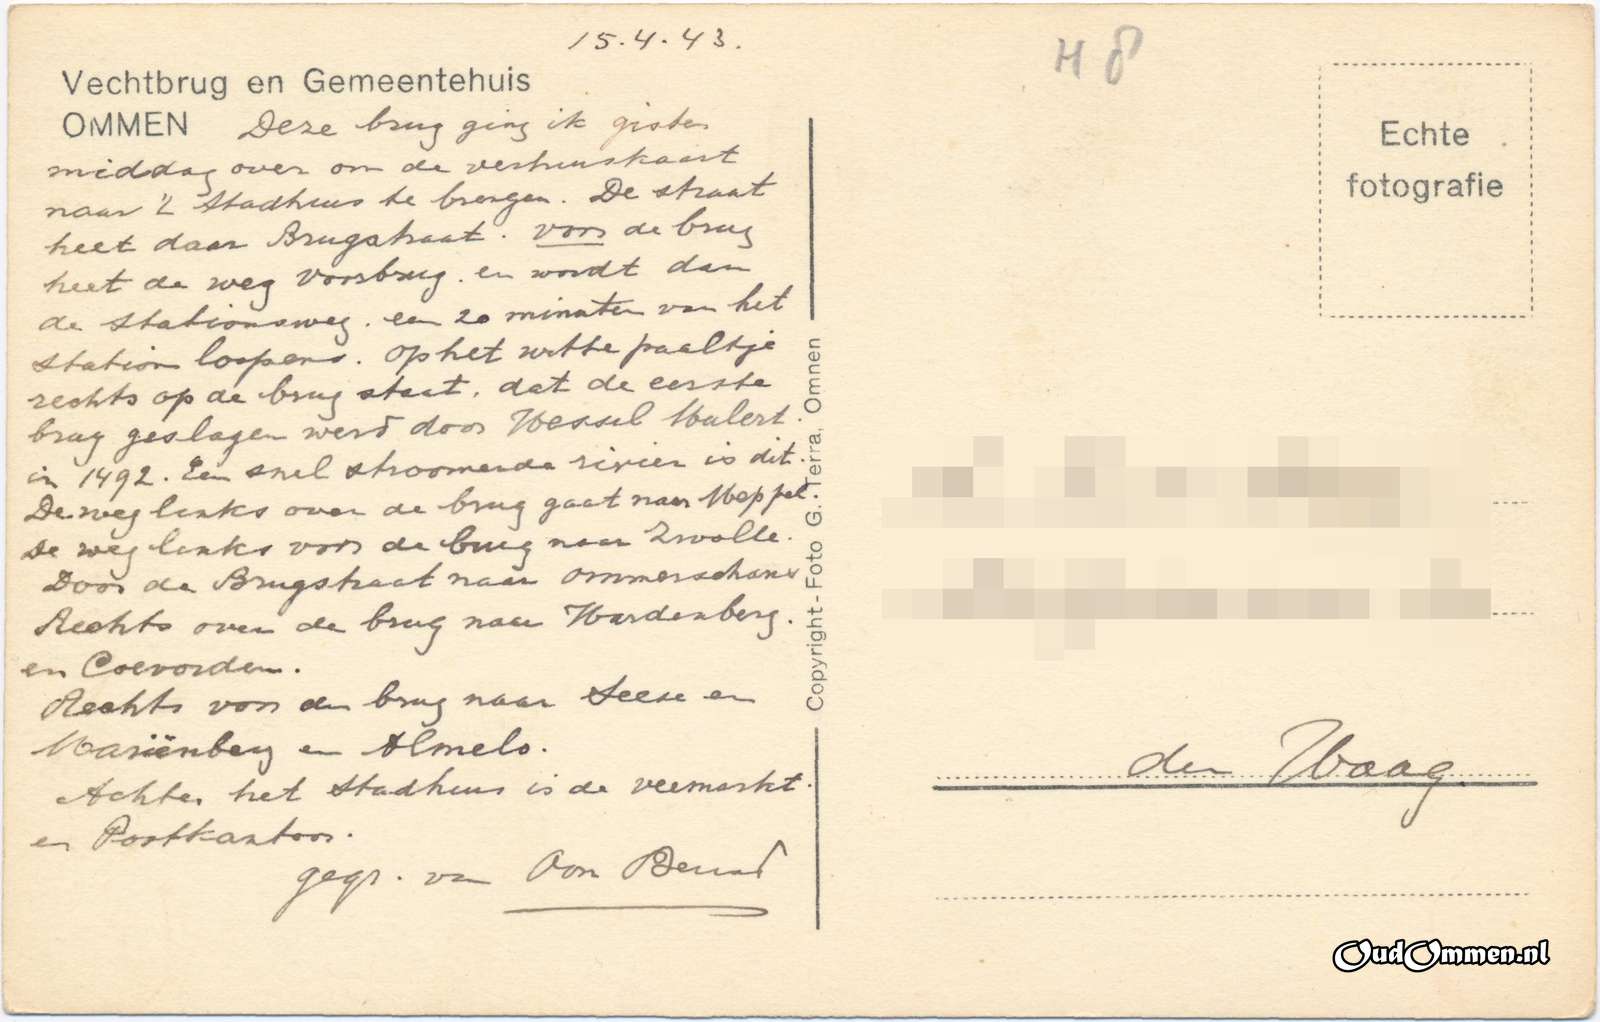 15.4.43.
H 8
Vechtbrug en Gemeentehuis
OMMEN
Deze brug ging ik gister
middag over om de verhuiskaart
naar 't Stadhuis te brengen. De straat
heet daar Brugstraat. voor de brug
heet de weg Voorbrug. en wordt dan
de Stationsweg. een 20 minuten van het
station loopens. Op het witte paaltje
rechts op de brug staat. dat de eerste
brug geslagen werd door Wessel Mulert.
in 1492. Een snel stroomende rivier is dit.
De weg links over de brug gaat naar Meppel.
De weg links voor de brug naar Zwolle.
Door de Brugstraat naar Ommerschans
Rechts over de brug naar Hardenberg.
en Coevorden.
Rechts voor de brug naar en
Mariënberg en Almelo.
Achter het Stadhuis is de veemarkt.
en Postkantoor.
gegr. van Oom
Copyright-Foto G. Terra, Ommen
Echte
fotografie
den Haag
OudOmmen.nl